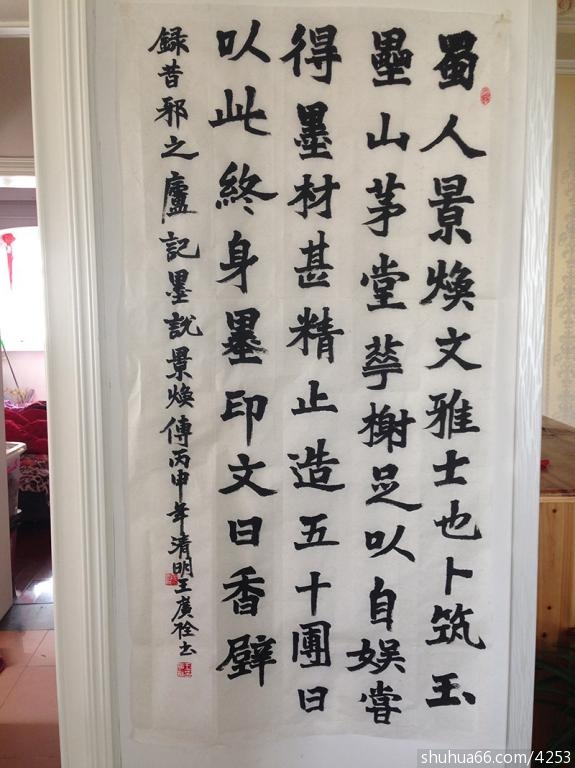 蜀人景煥文雅士也卜筑玉
壘山茅堂蕚榭足以自娱嘗
得墨材甚精止造五十團曰
以此終身墨印文曰香璧
録昔邪之廬記墨説景煥傳丙申年清明王廣栓书
shuhua66.com/4253